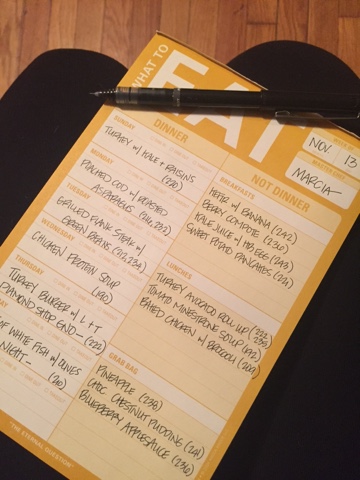 WHAT TO
EAT
WEEK OF
NOV. 13
MARCIA
DINNER
SUNDAY
TURKEY w/ KALE + RAISINS
(220)
MONDAY
POACHED COD w/ ROASTED
ASPARAGUS (216, 232)
TUESDAY
GRILLED FLANK STEAK w/
GREEN BEANS (213, 234)
WEDNESDAY
CHICKEN PROTEIN SOUP
(190)
THURSDAY
TURKEY BURGER w/ L + T
DIAMOND SHIP END (222)
OF WHITE FISH w/ OLIVES
NIGHT
(210)
NOT DINNER
BREAKFASTS
w/ BANANA (242)
BERRY COMPOTE (236)
KALE JUICE w/ HB EGG (243)
SWEET POTATO PANCAKES (221)
LUNCHES
TURKEY AVOCADO ROLL UP (223, 235)
TOMATO MINESTRONE SOUP (192)
BAKED CHICKEN w/ BROCCOLI (209)
GRAB BAG
PINEAPPLE (238)
CHOC CHESTNUT PUDDING (241)
BLUEBERRY APPLESAUCE (236)
"THE ETERNAL QUESTION"